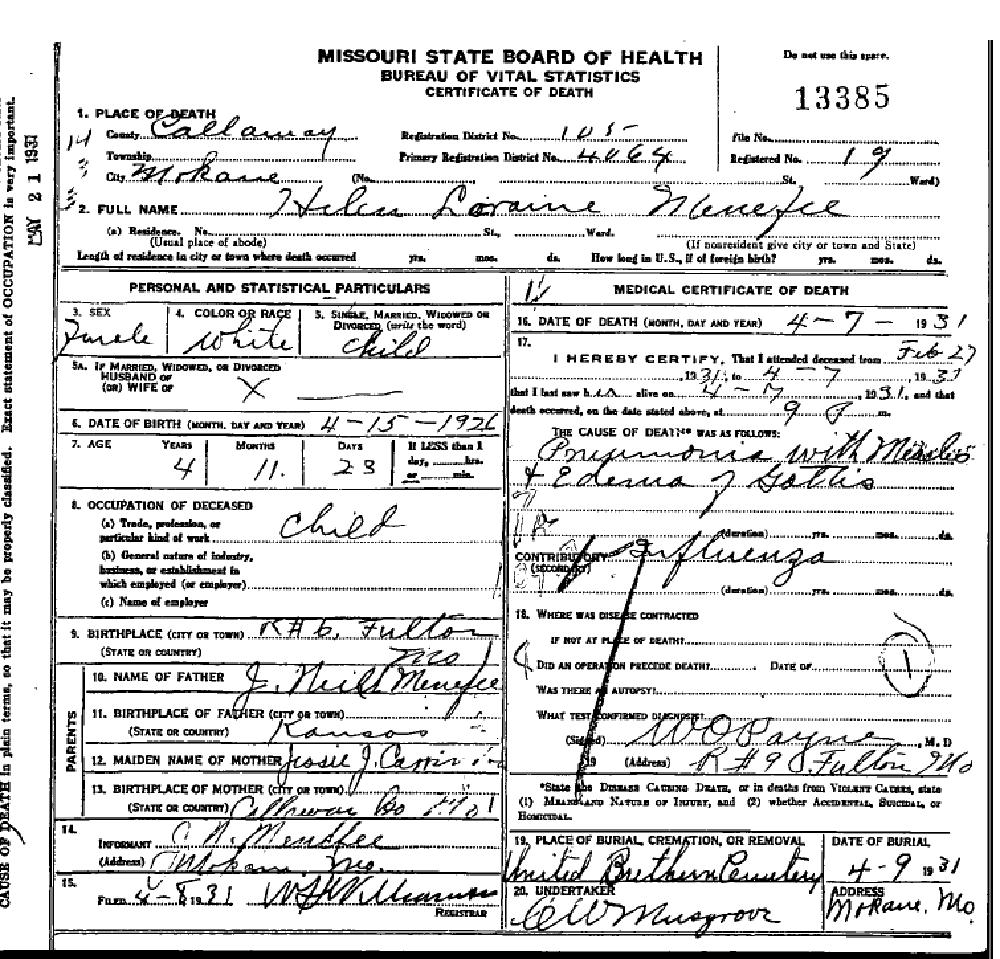 MISSOURI STATE BOARD OF HEALTH
BUREAU OF VITAL STATISTICS
CERTIFICATE OF DEATH
Do not use this space.
13385
1. PLACE OF DEATH
County Callaway Registration District No. 105 File No.
Township Primary Registration District No. 4064 Registered No. 19
City Mokane (No. St. Ward)
2. FULL NAME Helen Loraine Menefee
(a) Residence. No. St., Ward.
(Usual place of abode) (If nonresident give city or town and State)
Length of residence in city or town where death occurred yrs. mos. ds. How long in U.S., if of foreign birth? yrs. mos. ds.
PERSONAL AND STATISTICAL PARTICULARS
3. SEX 4. COLOR OR RACE 5. SINGLE, MARRIED, WIDOWED OR
DIVORCED (write the word)
Female White Child
5A. IF MARRIED, WIDOWED, OR DIVORCED
HUSBAND OF
(OR) WIFE OF X
6. DATE OF BIRTH (MONTH, DAY AND YEAR) 4-15-1926
7. AGE YEARS MONTHS DAYS If LESS than 1
day, hrs.
or min.
4 11. 23
8. OCCUPATION OF DECEASED
(a) Trade, profession, or
particular kind of work Child
(b) General nature of industry,
business, or establishment in
which employed (or employer)
(c) Name of employer
9. BIRTHPLACE (CITY OR TOWN) R#6. Fulton
(STATE OR COUNTRY) Mo
PARENTS
10. NAME OF FATHER J. Neill Menefee
11. BIRTHPLACE OF FATHER (CITY OR TOWN)
(STATE OR COUNTRY) Kansas
12. MAIDEN NAME OF MOTHER Jessie J.
13. BIRTHPLACE OF MOTHER (CITY OR TOWN)
(STATE OR COUNTRY) Co Mo
14.
INFORMANT Menefee
(Address) Mokane, Mo.
15.
FILED 4-8 1931
REGISTRAR
MEDICAL CERTIFICATE OF DEATH
16. DATE OF DEATH (MONTH, DAY AND YEAR) 4-7-1931
17.
I HEREBY CERTIFY, That I attended deceased from Feb 27
, 1931, to 4-7, 1931
that I last saw h alive on 4-7, 1931, and that
death occurred, on the date stated above, at 9 P m.
THE CAUSE OF DEATH* WAS AS FOLLOWS:
Pneumonia with Measles
& Edema of Gottis
(duration) yrs. mos. ds.
CONTRIBUTORY Influenza
(SECONDARY)
(duration) yrs. mos. ds.
18. WHERE WAS DISEASE CONTRACTED
IF NOT AT PLACE OF DEATH?
DID AN OPERATION PRECEDE DEATH? DATE OF
WAS THERE AN AUTOPSY?
WHAT TEST CONFIRMED DIAGNOSIS?
(Signed) W O Payne, M. D
19 (Address) R #9 Fulton Mo
*State the DISEASE CAUSING DEATH, or in deaths from VIOLENT CAUSES, state
(1) MEANS AND NATURE OF INJURY, and (2) whether ACCIDENTAL, SUICIDAL, or
HOMICIDAL.
19. PLACE OF BURIAL, CREMATION, OR REMOVAL DATE OF BURIAL
United Brethern Cemetery 4-9 1931
20. UNDERTAKER ADDRESS
C W Musgrove Mokane, Mo
1
MAY 21 1931
CAUSE OF DEATH in plain terms, so that it may be properly classified. Exact statement of OCCUPATION is very important.